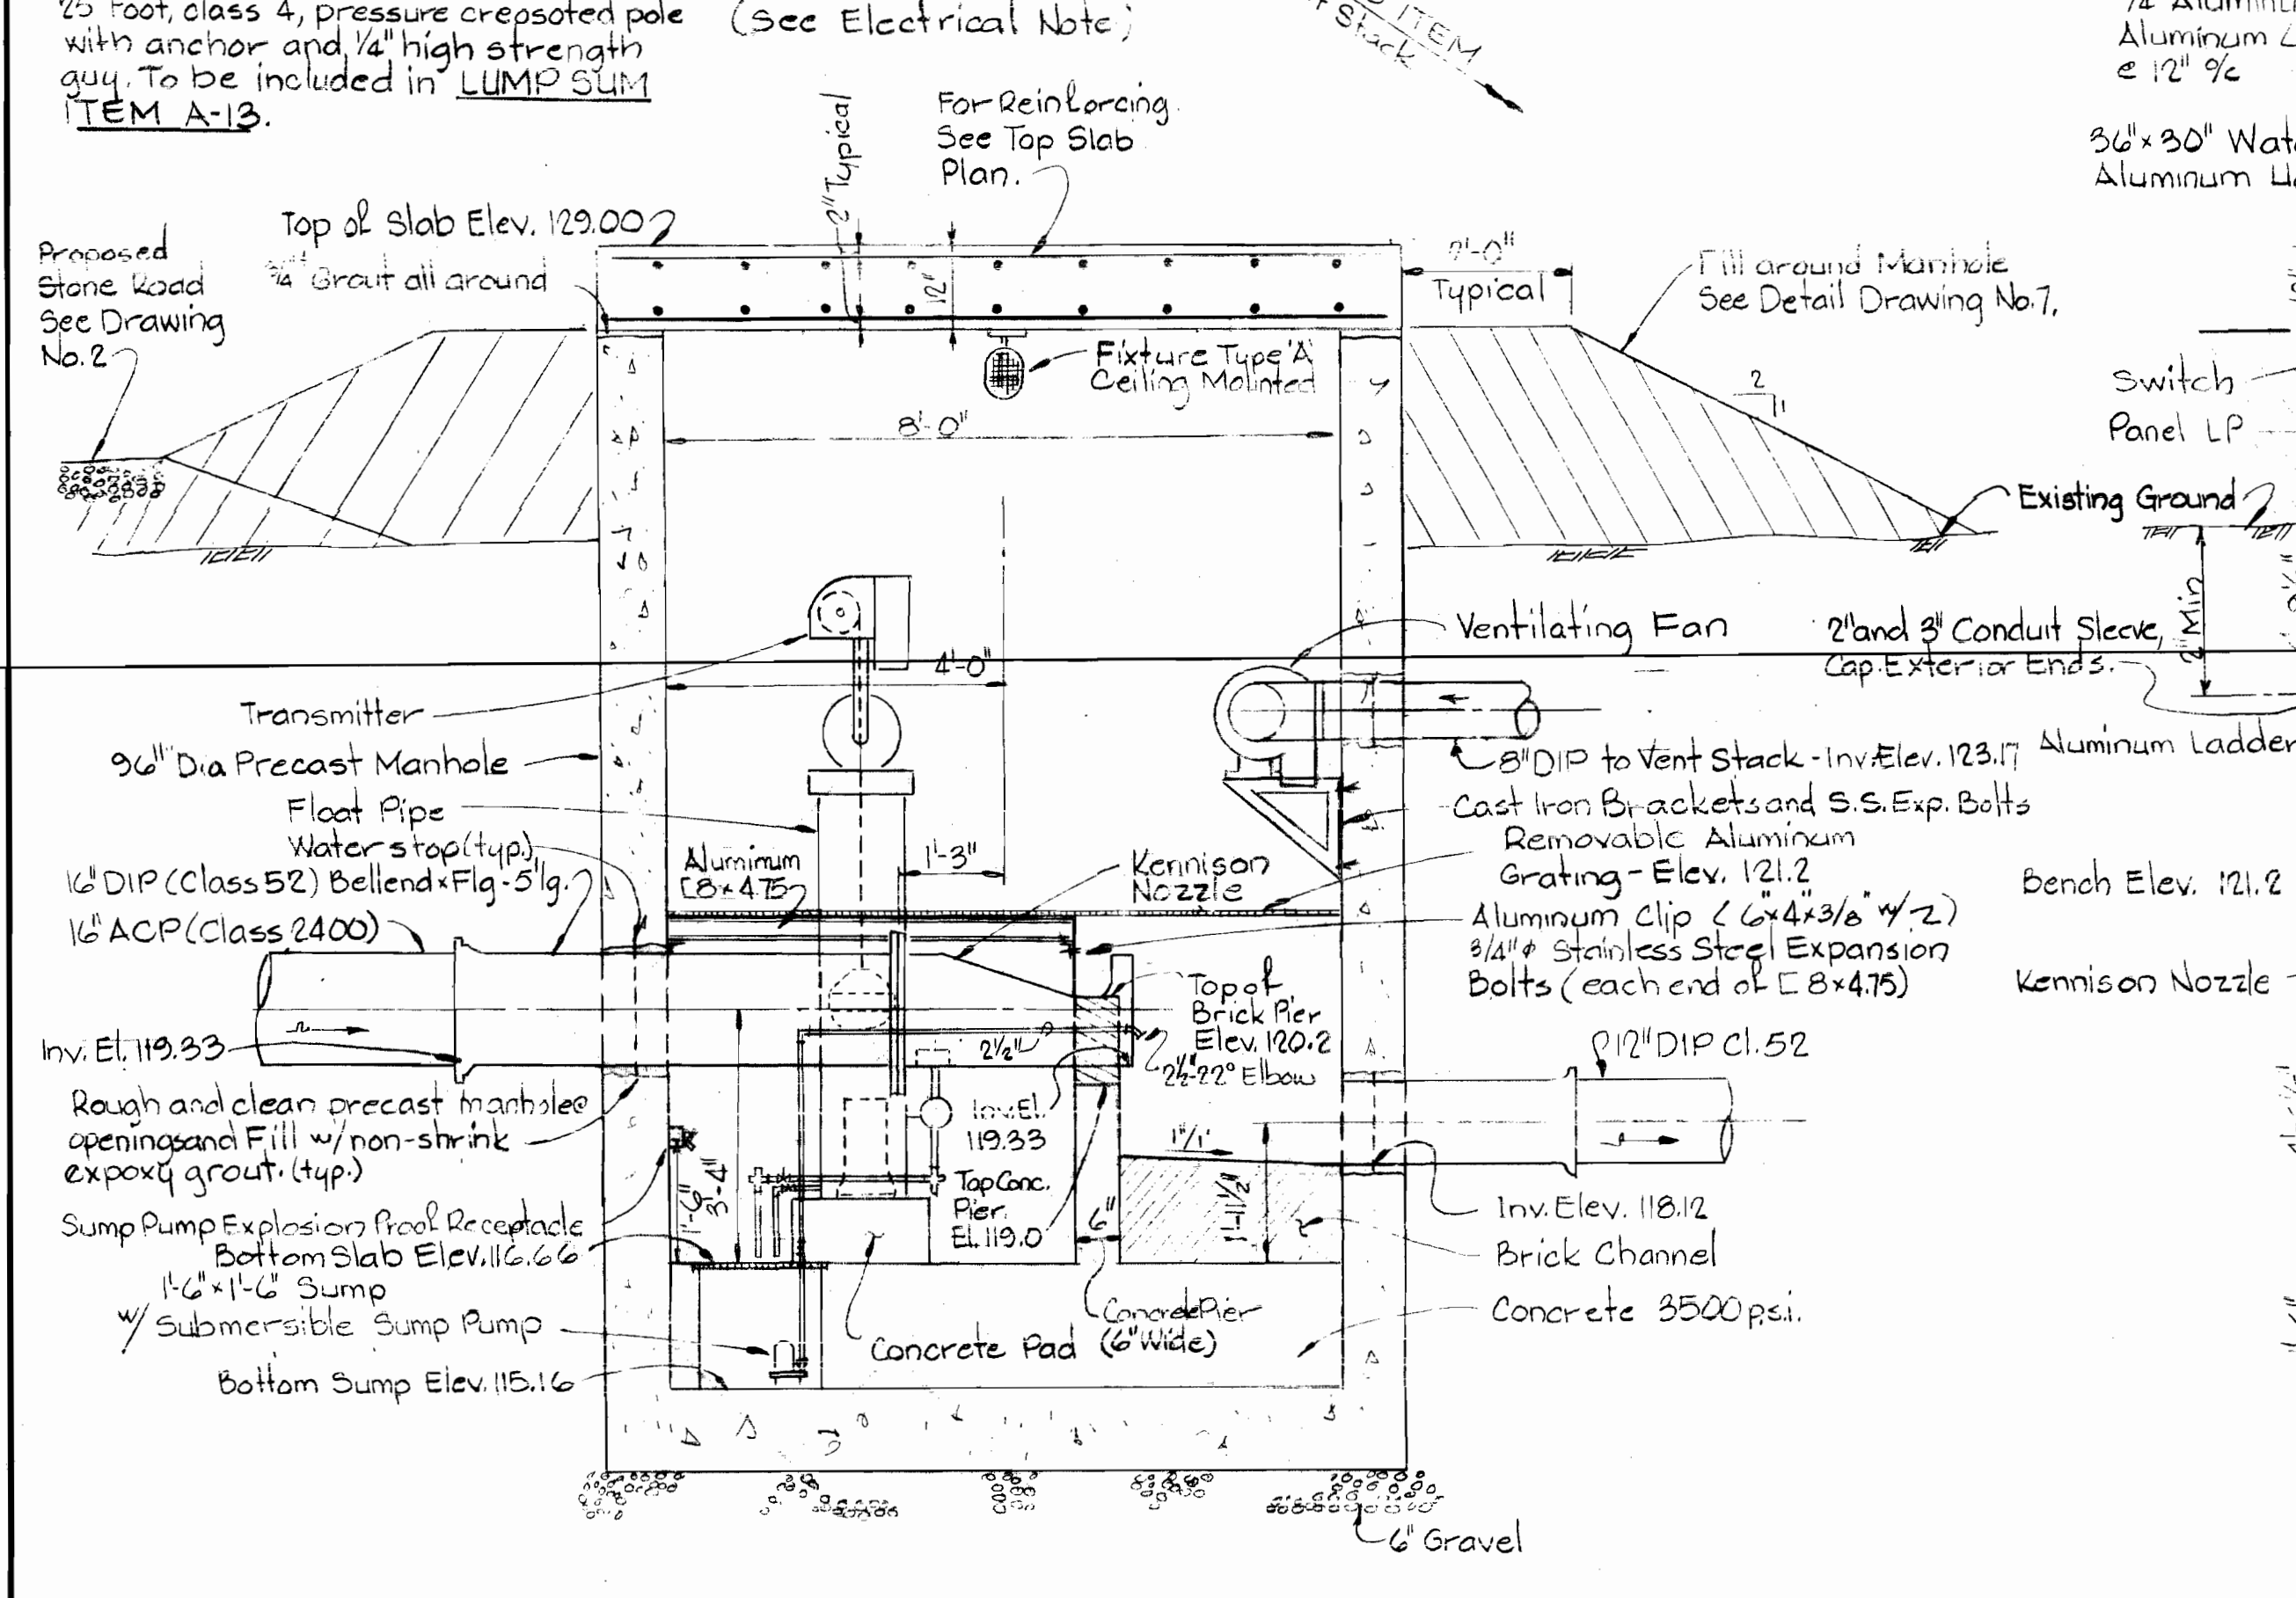 25 Foot, class 4, pressure creosoted pole
with anchor and 1/4" high strength
guy. To be included in LUMP SUM
ITEM A-13.
(See Electrical Note)
ITEM
Stack
Aluminum
e 12" o/c
36"x30"
Aluminum
2" Typical
For Reinforcing
See Top Slab
Plan.
Top of Slab Elev. 129.00
3/4" Grout all around
Proposed
Stone Road
See Drawing
No. 2
12"
2'-0"
Typical
Fill around Manhole
See Detail Drawing No. 7.
Fixture Type 'A'
Ceiling Mounted
8'-0"
2
1
Switch
Panel LP
Existing Ground
2' Min
Ventilating Fan
2" and 3" Conduit Sleeve,
Cap Exterior Ends.
4'-0"
Transmitter
96" Dia Precast Manhole
Float Pipe
Water stop (typ.)
16" DIP (Class 52) Bellend x Flg - 5' lg.
16" ACP (Class 2400)
Aluminum
[8 x 4.75
1'-3"
Kennison
Nozzle
8" DIP to Vent Stack - Inv. Elev. 123.17
Cast Iron Brackets and S.S. Exp. Bolts
Removable Aluminum
Grating - Elev. 121.2
Aluminum Clip (6"x4"x3/8" w/2)
3/4"φ Stainless Steel Expansion
Bolts (each end of [8x4.75)
Aluminum Ladder
Bench Elev. 121.2
Kennison Nozzle
Top of
Brick Pier
Elev. 120.2
2 1/2"-22° Elbow
2 1/2"
12" DIP Cl. 52
Inv. El. 119.33
Rough and clean precast manhole
openings and Fill w/ non-shrink
expoxy grout. (typ.)
Inv. El.
119.33
Top Conc.
Pier.
El. 119.0
1"/1'
1'-6"
3'-4"
6"
1'-11 1/2"
Sump Pump Explosion Proof Receptacle
Bottom Slab Elev. 116.66
1'-6" x 1'-6" Sump
w/ Submersible Sump Pump
Bottom Sump Elev. 115.16
Concrete Pad
Concrete Pier
(6" Wide)
Inv. Elev. 118.12
Brick Channel
Concrete 3500 p.s.i.
6" Gravel